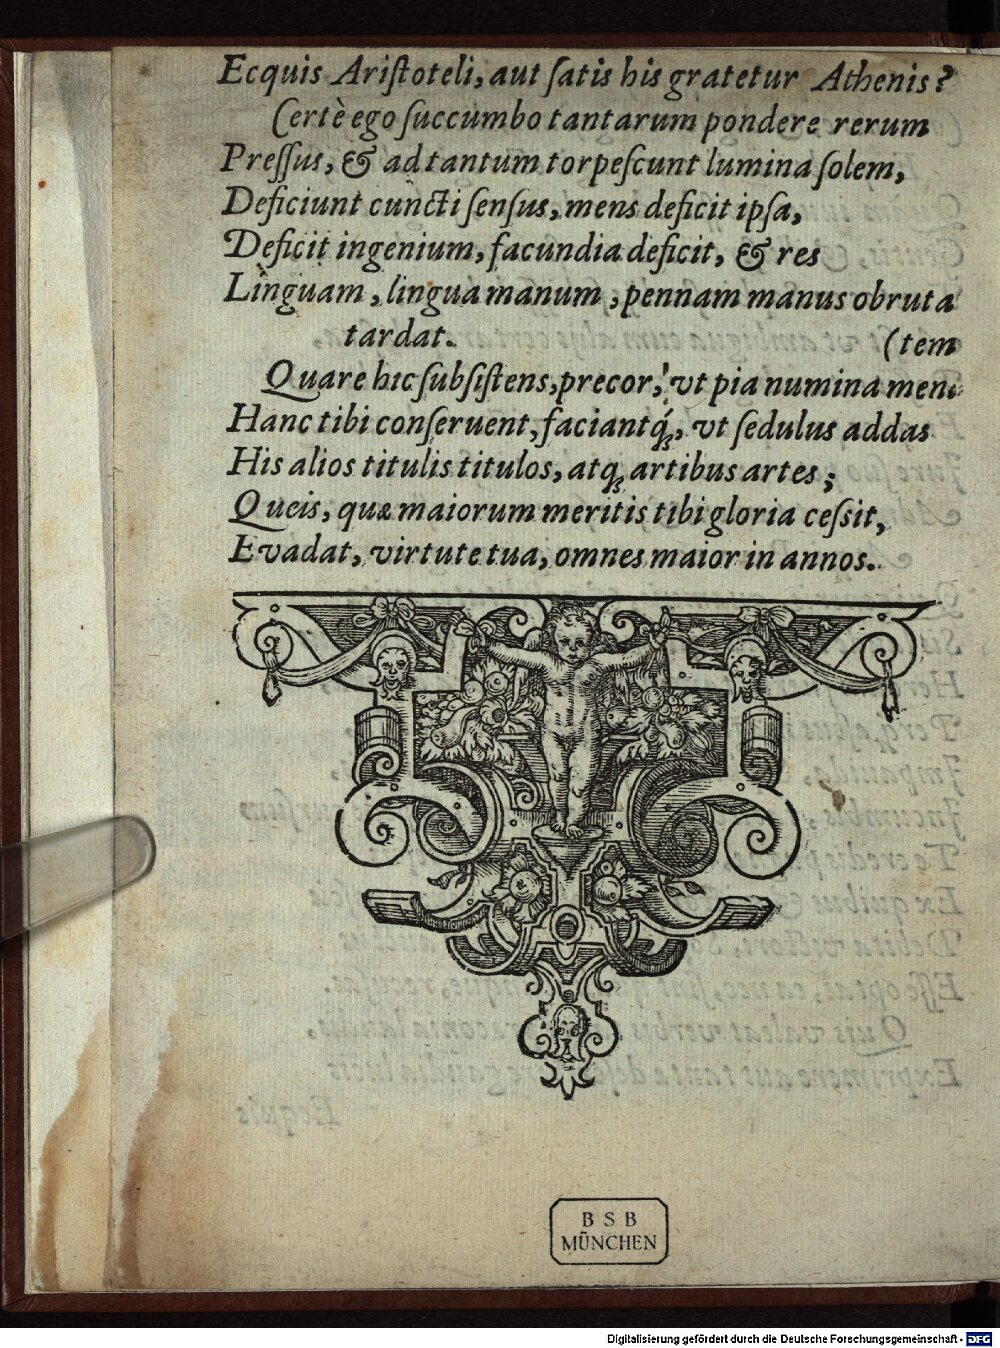 Ecquis Ariſtoteli, aut ſatis his gratetur Athenis?
Certè ego ſuccumbo tantarum pondere rerum
Preſſus, & ad tantum torpeſcunt lumina ſolem,
Deficiunt cuncti ſenſus, mens deficit ipſa,
Deficit ingenium, facundia deficit, & res
Linguam, lingua manum, pennam manus obruta
tardat. (tem
Quare hic ſubſiſtens, precor, vt pia numina men
Hanc tibi conſeruent, faciantq́ꝫ, vt ſedulus addas
His alios titulis titulos, atqꝫ artibus artes;
Queis, quæ maiorum meritis tibi gloria ceſsit,
Evadat, virtute tua, omnes maior in annos.
B S B
MÜNCHEN
Digitalisierung gefördert durch die Deutsche Forschungsgemeinschaft - DFG